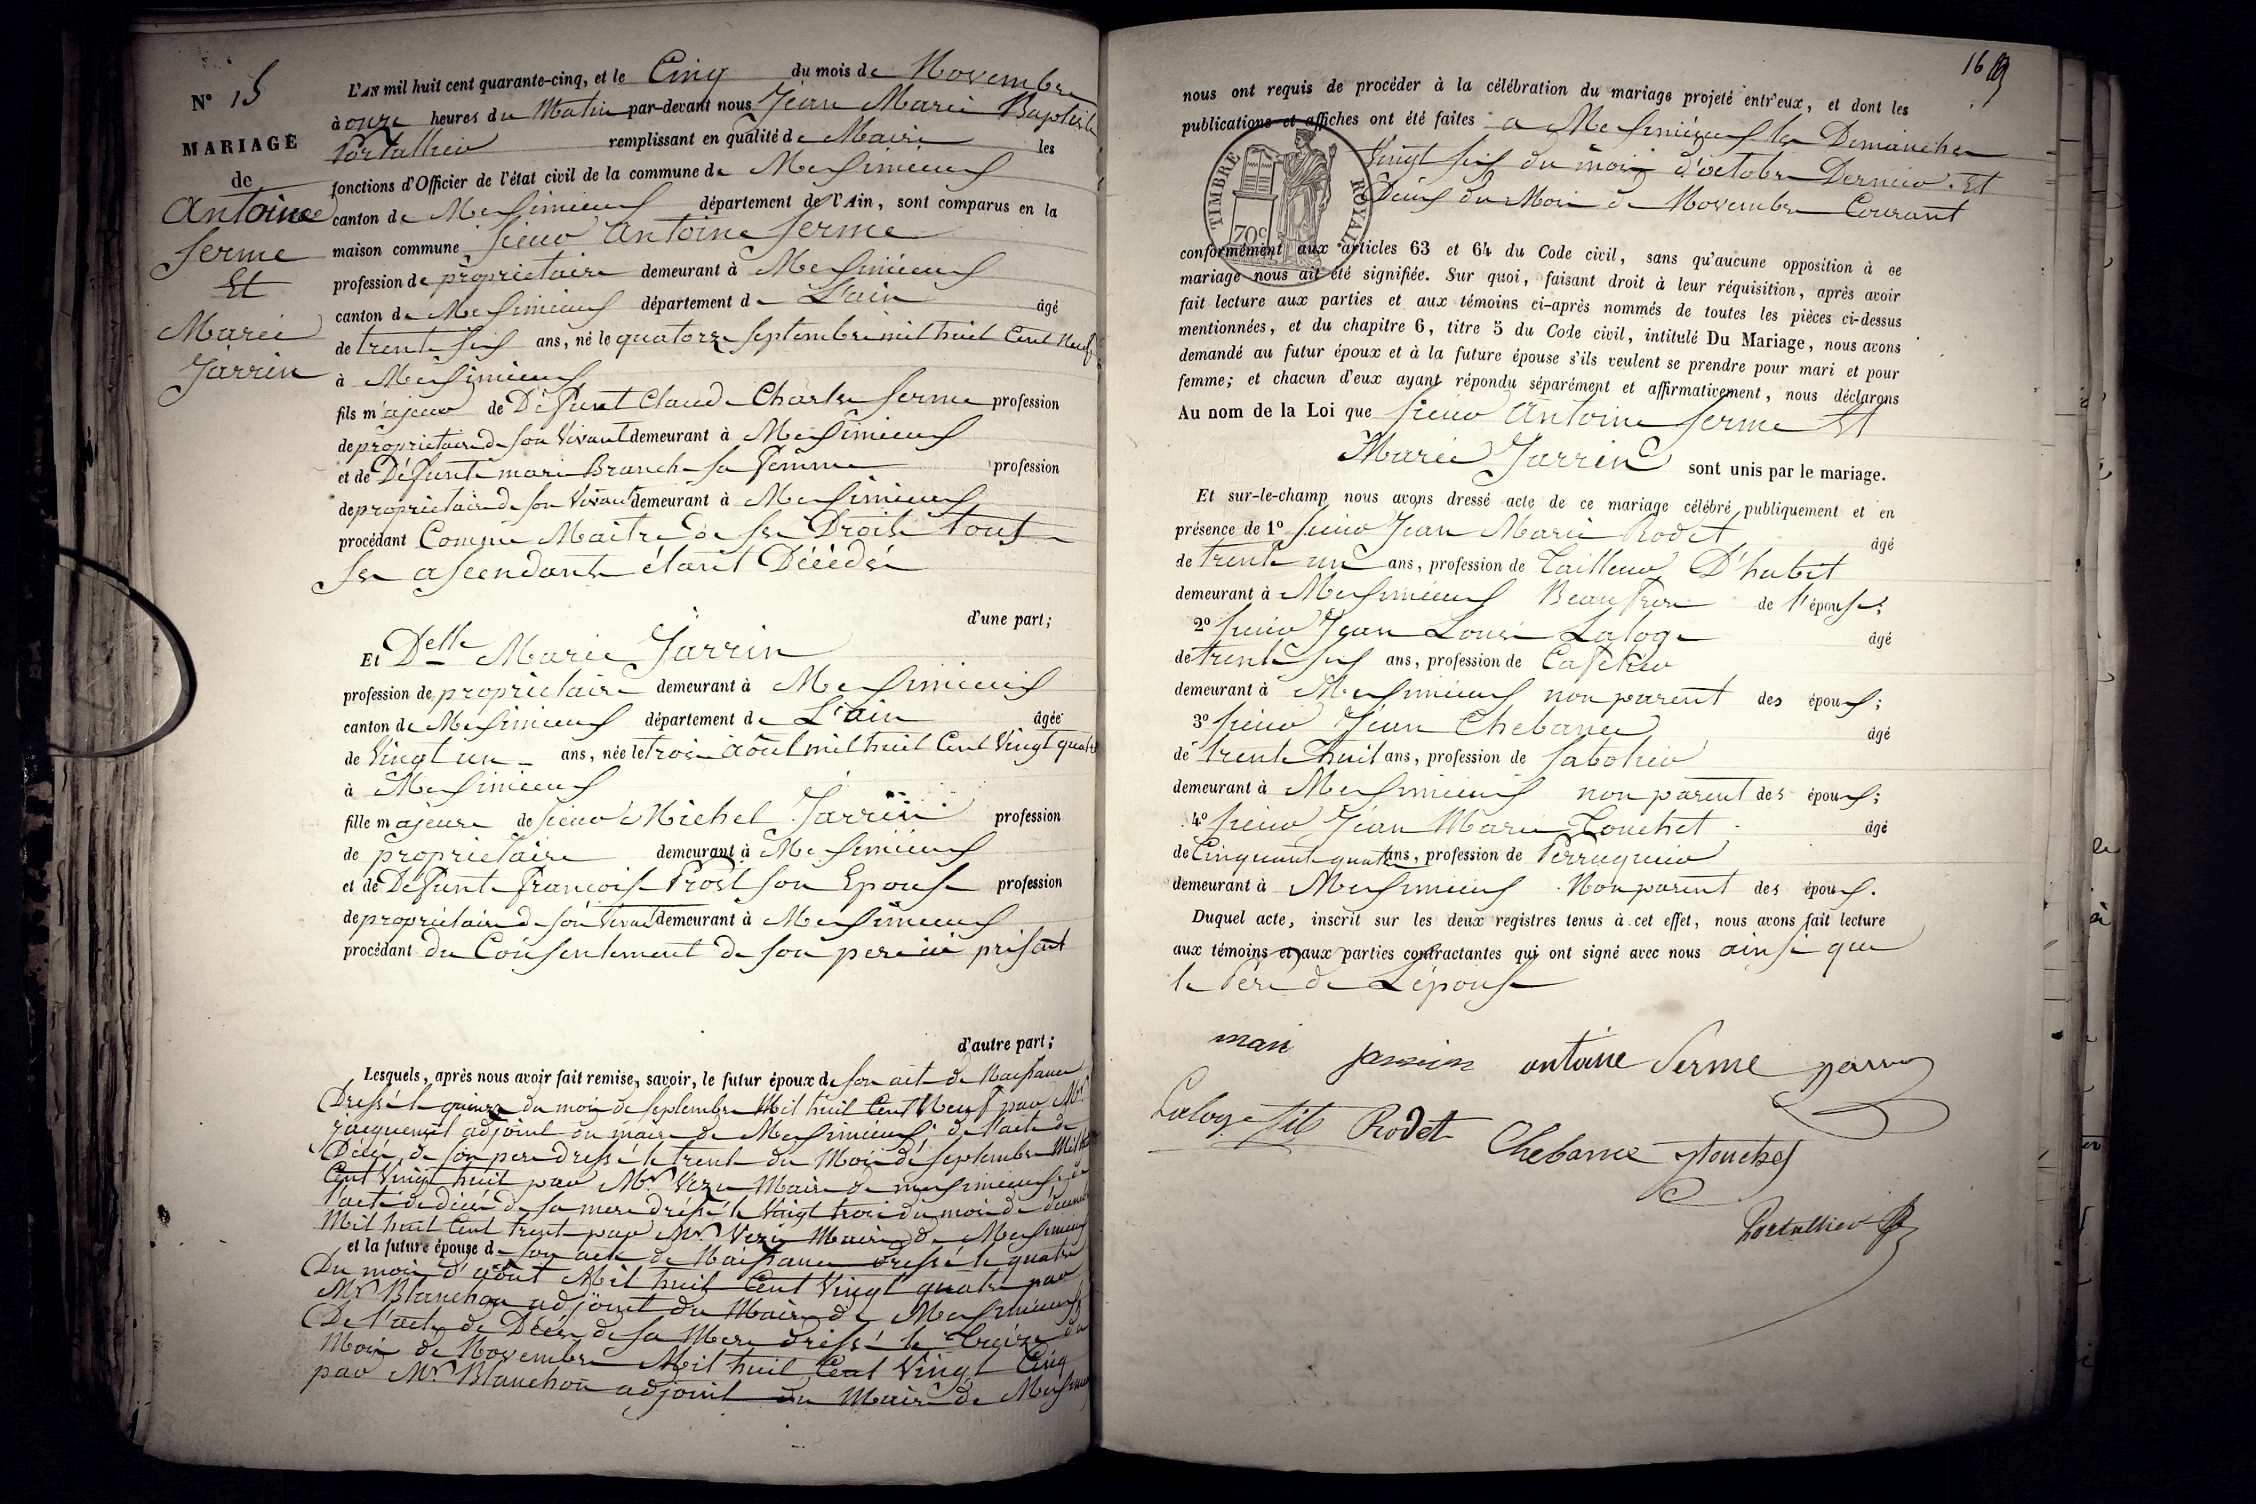 N° 15
MARIAGE
de
Antoine
Serme
Et
Marie
Jarrin
L'AN mil huit cent quarante-cinq, et le Cinq du mois de Novembre
à onze heures du Matin par-devant nous Jean Marie Baptiste
Portallier remplissant en qualité de Maire les
fonctions d'Officier de l'état civil de la commune de Meximieux
canton de Meximieux département de l'Ain, sont comparus en la
maison commune sieur Antoine Serme
profession de propriétaire demeurant à Meximieux
canton de Meximieux département de L'ain âgé
de trente six ans, né le quatorze septembre mil huit Cent Neuf
à Meximieux
fils majeur de Défunt Claude Charles Serme profession
de propriétaire de son Vivant demeurant à Meximieux
et de Défunte marie Branche sa femme profession
de propriétaire de son Vivant demeurant à Meximieux
procédant Comme Maitre de ses Droits tous
ses ascendants étant Décédés
d'une part;
Et Delle Marie Jarrin
profession de propriétaire demeurant à Meximieux
canton de Meximieux département de L'ain âgée
de Vingt un ans, née le trois août mil huit Cent Vingt quatre
à Meximieux
fille majeure de sieur Michel Jarrin profession
de propriétaire demeurant à Meximieux
et de Défunte françoise Prost son Epouse profession
de propriétaire de son Vivant demeurant à Meximieux
procédant du Consentement de son pere ici présent
d'autre part;
Lesquels, après nous avoir fait remise, savoir, le futur époux de son acte de Naissance
Dressé le quinze du mois de septembre Mil huit Cent Neuf par Mr
Jacquemet adjoint du maire de Meximieux de l'acte de
Décès de son pere dressé le trente du Mois de septembre Mil huit
Cent Vingt huit par Mr. Vezu Maire de meximieux, de
l'acte de décès de sa mere dressé le Vingt trois du mois de décembre
Mil huit Cent trente par Mr. Vezu Maire de Meximieux
et la future épouse de son acte de Naissance dressé le quatre
Du mois d'août Mil huit Cent Vingt quatre par
Mr Blanchon adjoint du Maire de Meximieux,
De l'acte de Décès de sa Mere dressé le treize du
Mois de Novembre Mil huit Cent Vingt Cinq
par Mr. Blanchon adjoint du Maire de Meximieux
16
nous ont requis de procéder à la célébration du mariage projeté entr'eux, et dont les
publications et affiches ont été faites a Meximieux les Dimanches
Vingt six du mois d'octobre Dernier. Et
Deux du Mois de Novembre Courant
TIMBRE ROYAL
70c
conformément aux articles 63 et 64 du Code civil, sans qu'aucune opposition à ce
mariage nous ait été signifiée. Sur quoi, faisant droit à leur réquisition, après avoir
fait lecture aux parties et aux témoins ci-après nommés de toutes les pièces ci-dessus
mentionnées, et du chapitre 6, titre 5 du Code civil, intitulé Du Mariage, nous avons
demandé au futur époux et à la future épouse s'ils veulent se prendre pour mari et pour
femme; et chacun d'eux ayant répondu séparément et affirmativement, nous déclarons
Au nom de la Loi que sieur Antoine Serme Et
Marie Jarrin sont unis par le mariage.
Et sur-le-champ nous avons dressé acte de ce mariage célébré publiquement et en
présence de 1° sieur Jean Marie Rodet âgé
de trente un ans, profession de Tailleur D'habit
demeurant à Meximieux Beau frere de l'épouse;
2° sieur Jean Louis Laloge âgé
de trente six ans, profession de Cafetier
demeurant à Meximieux non parent des époux;
3° sieur Jean Chebance âgé
de trente huit ans, profession de sabotier
demeurant à Meximieux non parent des époux;
4° sieur Jean Marie Touchet âgé
de Cinquante quatre ans, profession de Perruquier
demeurant à Meximieux Non parent des époux.
Duquel acte, inscrit sur les deux registres tenus à cet effet, nous avons fait lecture
aux témoins et aux parties contractantes qui ont signé avec nous ainsi que
le Père de L'épouse
mari jarrin antoine Serme jarrin
Laloge fils Rodet Chebance Touchet
Portallier